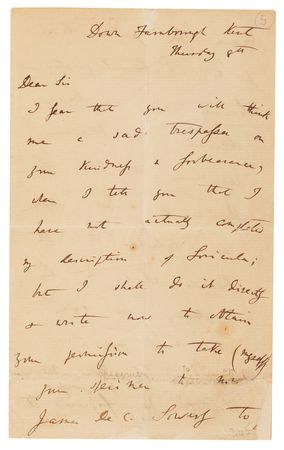 5
Down Farnborough Kent
Thursday 8th
Dear Sir
I fear that you will think
me a sad trespasser on
your kindness & forbearance,
when I tell you that I
have not actually completed
my description of Loricula;
but I shall do it directly
& write now to obtain
your permission to take (myself)
your specimen to
James De C. Sowerby to